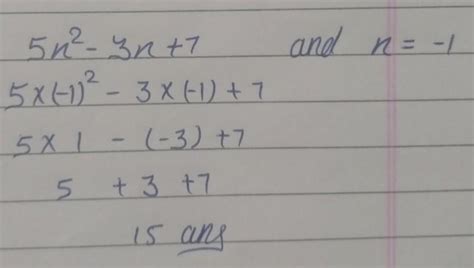 5n² - 3n + 7 and n = -1
5×(-1)² - 3×(-1) + 7
5×1 - (-3) + 7
5 + 3 + 7
15 ans